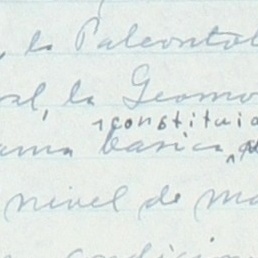 , la Paleontol
ral, la Geomo
constituid
ama basica,
nivel de ma
condicion